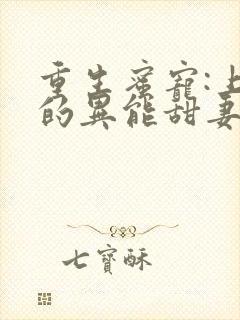 重生蜜寵:上
的異能甜妻
七寶酥